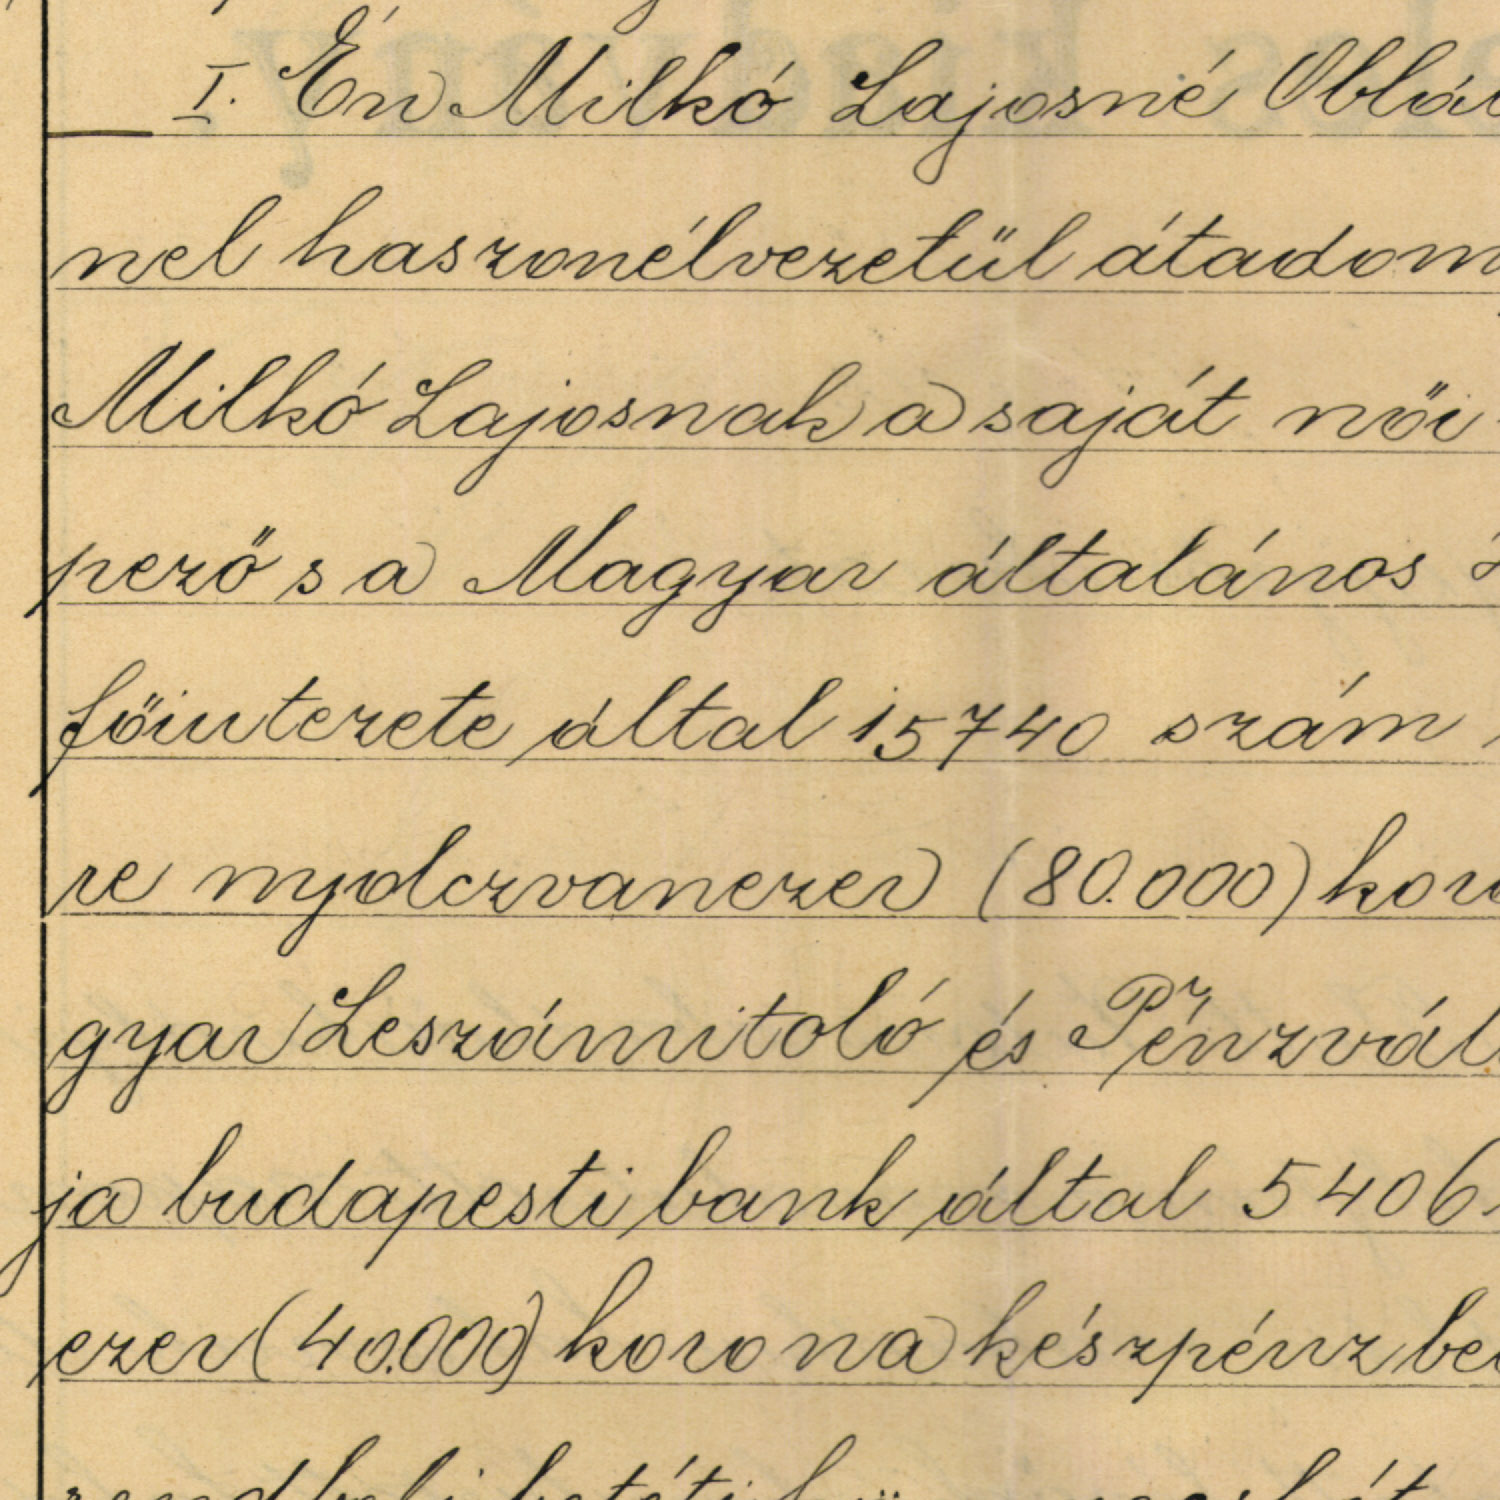 I. Én Milkó Lajosné Oblá
nel haszonélvezetül átadom
Milkó Lajosnak a saját női
pező s a Magyar általános
főintezete által 15740 szám
re nyolczvanezer (80.000) koro
gyar Leszámitoló és Pénzvál
ja budapesti bank által 5406
ezer (40.000) korona készpénz be
rendbeli betéti